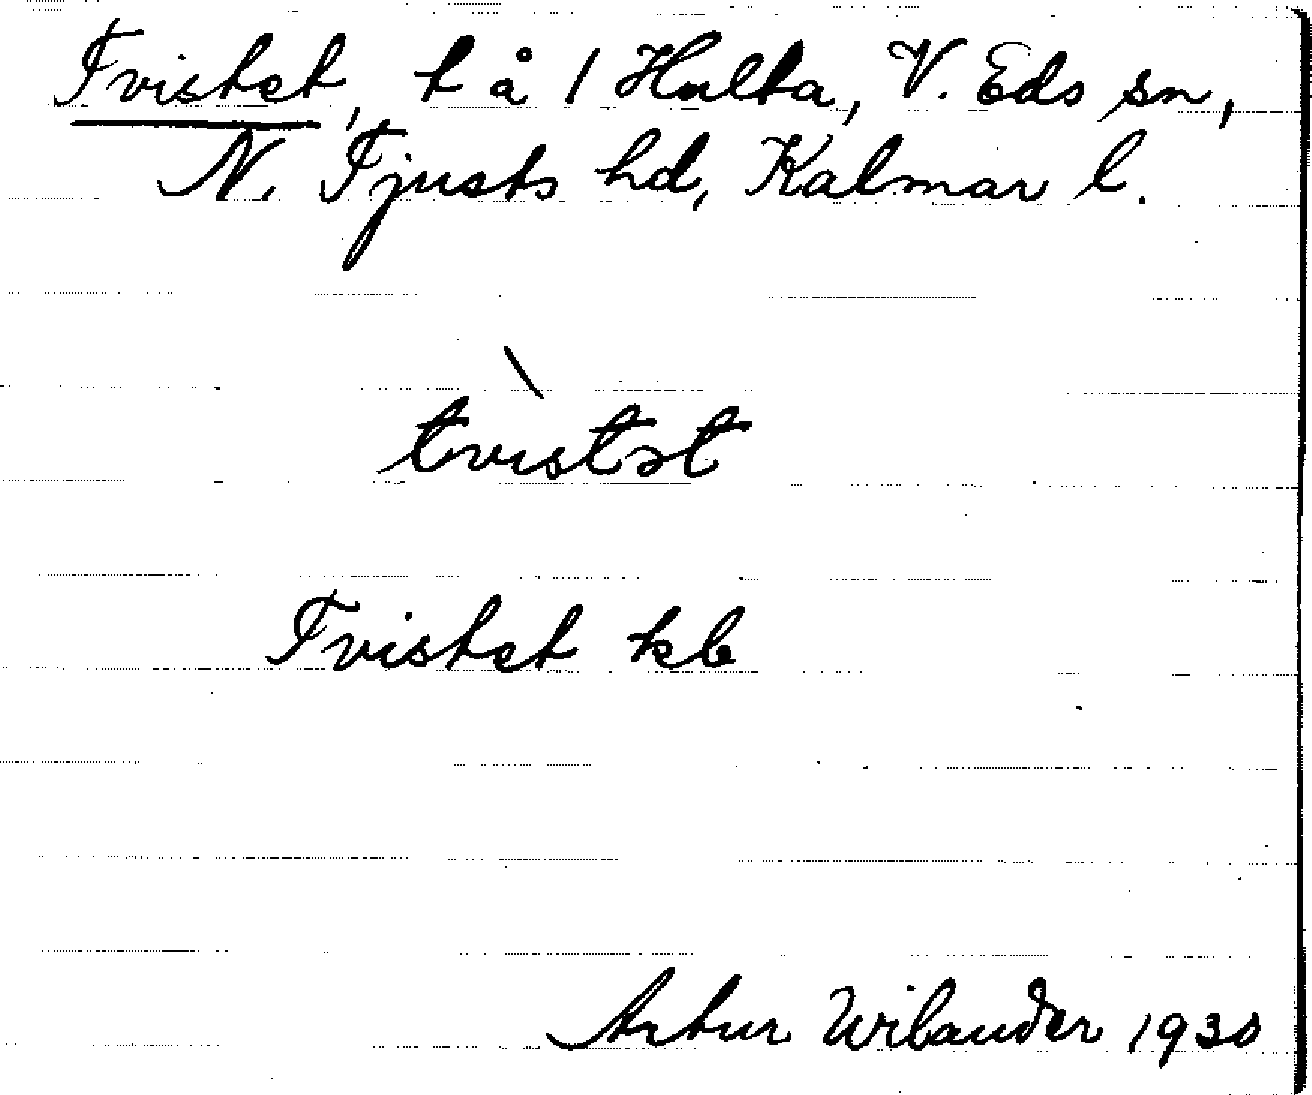 Tvistet, t å 1 Hulta, V. Eds sn,
N. Tjusts hd, Kalmar l.
tvìstət
Tvistet kb
Artur Wilander 1930